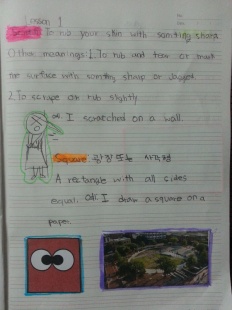 Lesson 1
To rub your skin with somting sharp
Other meanings: 1. To rub and tear or mark
the surface with somting sharp or Jagged.
2. To scrape or rub slightly
I scratched on a wall.
Square 광장 또는 사각형
A rectangle with all sides
equal. I draw a square on a
paper.